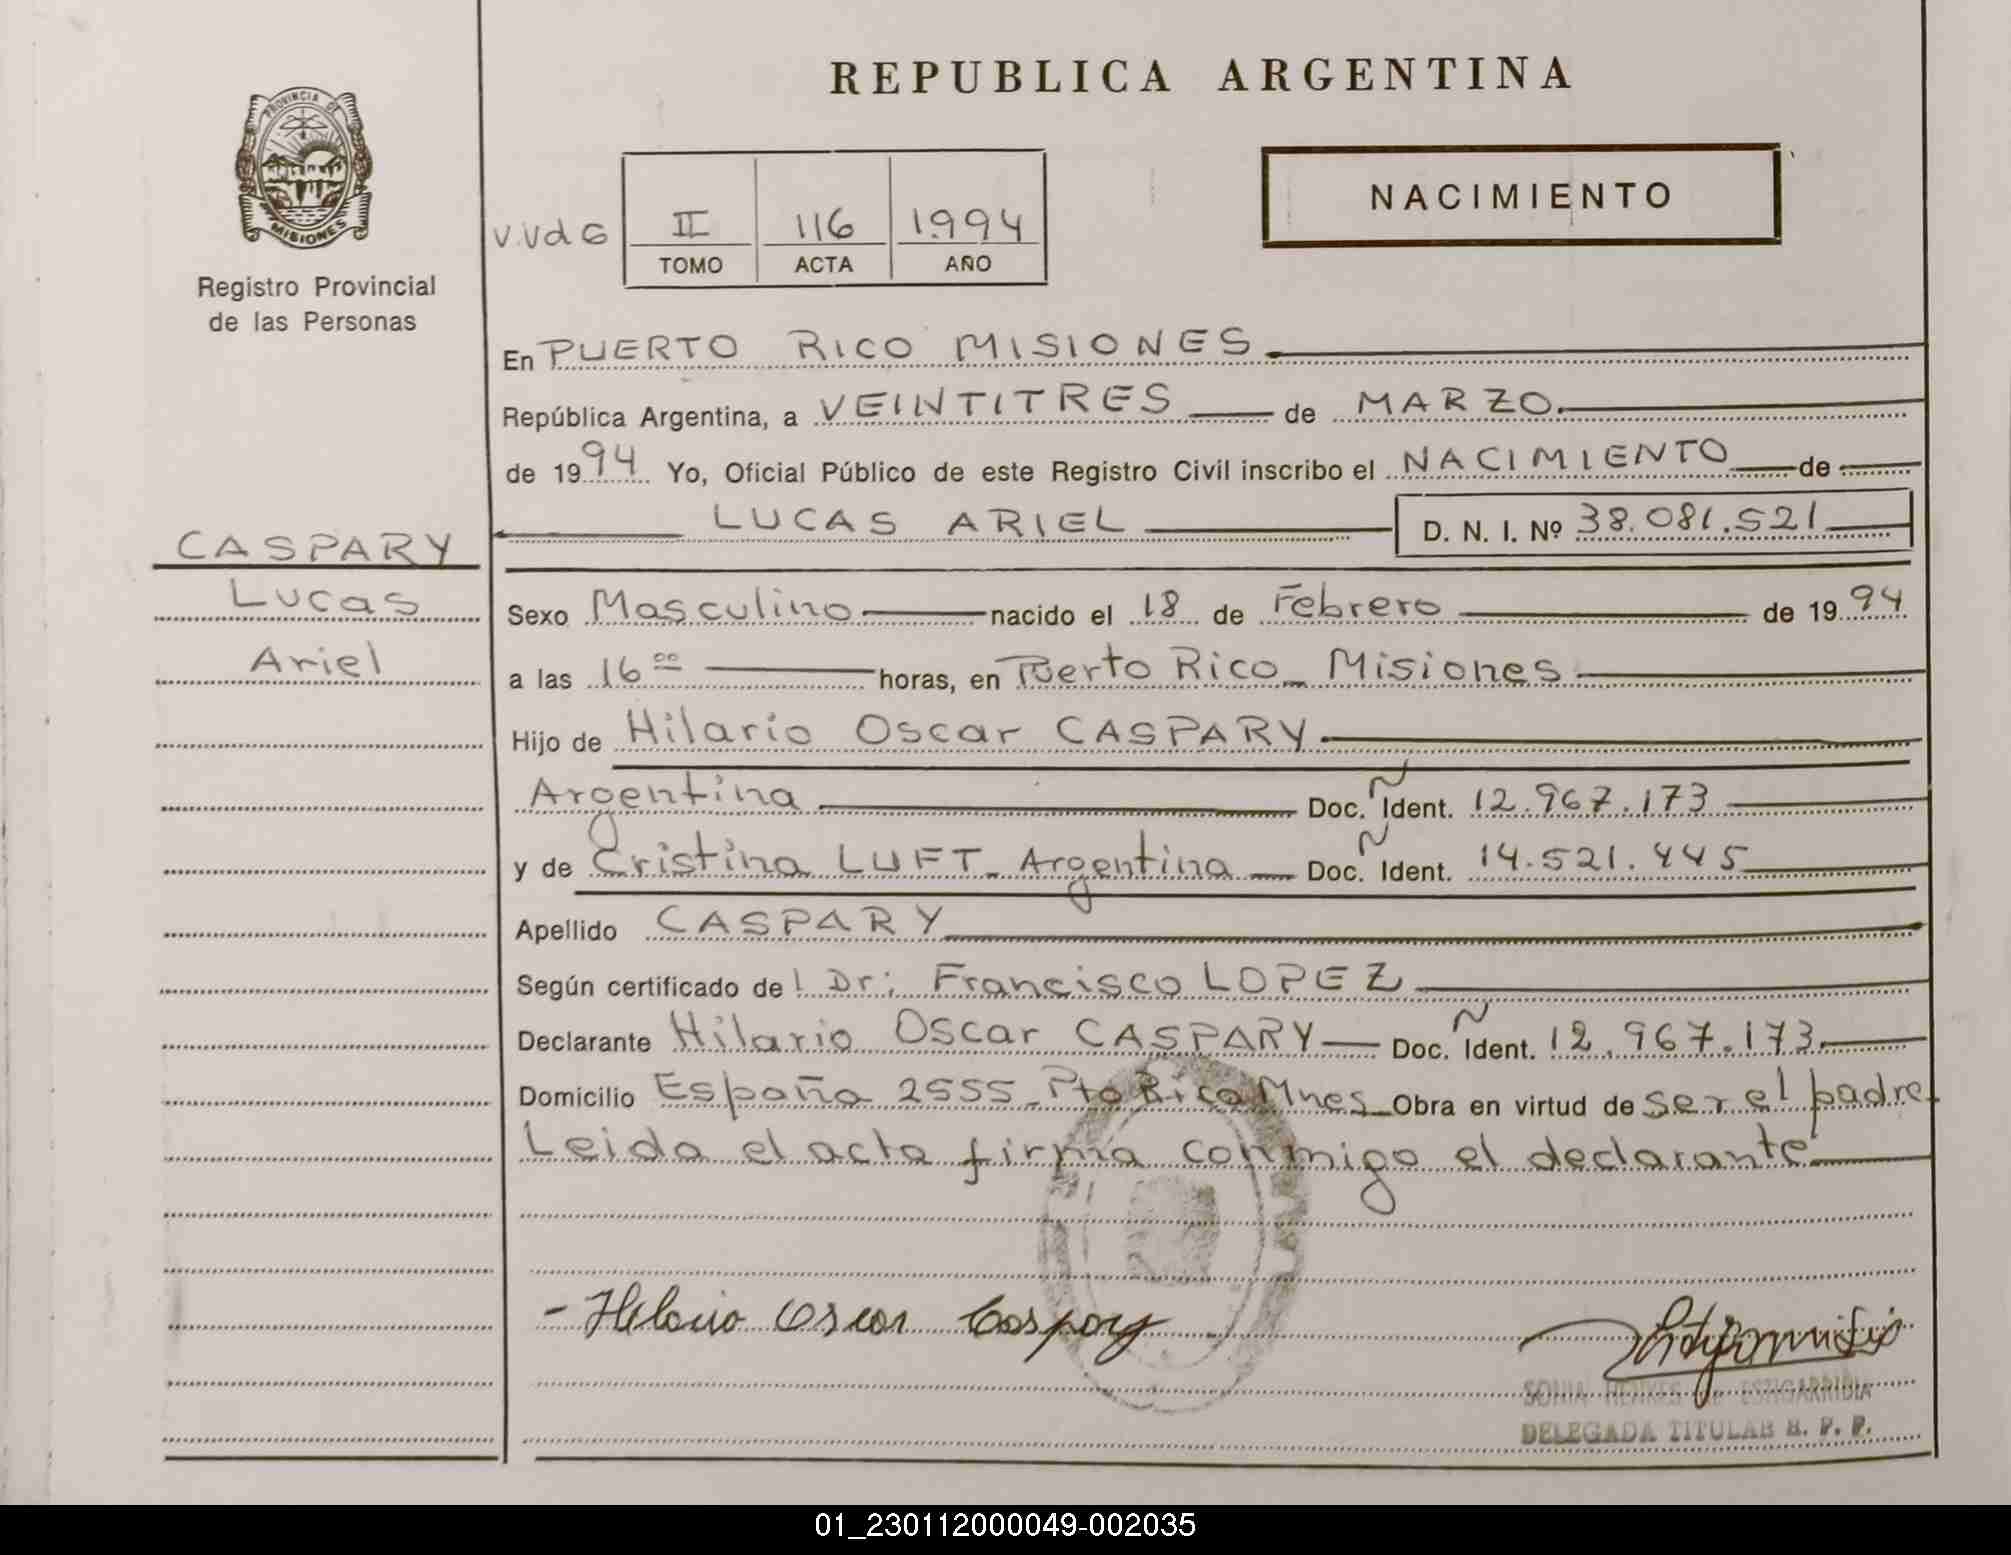 REPUBLICA ARGENTINA
PROVINCIA DE
MISIONES
Registro Provincial
de las Personas
NACIMIENTO
V.VdG
II 116 1.994
TOMO ACTA AÑO
En PUERTO RICO MISIONES
República Argentina, a VEINTITRES de MARZO
de 1994 Yo, Oficial Público de este Registro Civil inscribo el NACIMIENTO de
LUCAS ARIEL D. N. I. Nº 38.081.521
CASPARY
Lucas
Ariel
Sexo Masculino nacido el 18 de Febrero de 1994
a las 16 00 horas, en Puerto Rico_ Misiones
Hijo de Hilario Oscar CASPARY
Argentina Doc. Ñ Ident. 12.967.173
y de Cristina LUFT_ Argentina Doc. Ñ Ident. 14.521.445
Apellido CASPARY
Según certificado de l Dr: Francisco LOPEZ
Declarante Hilario Oscar CASPARY Doc. Ñ Ident. 12.967.173
Domicilio España 2555_ Pto Rico Mnes_ Obra en virtud de ser el padre
Leida el acta firma conmigo el declarante
- Hilario Oscar Caspary
SONIA HENKES de ESTIGARRIBIA
DELEGADA TITULAR R. P. P.
01_230112000049-002035